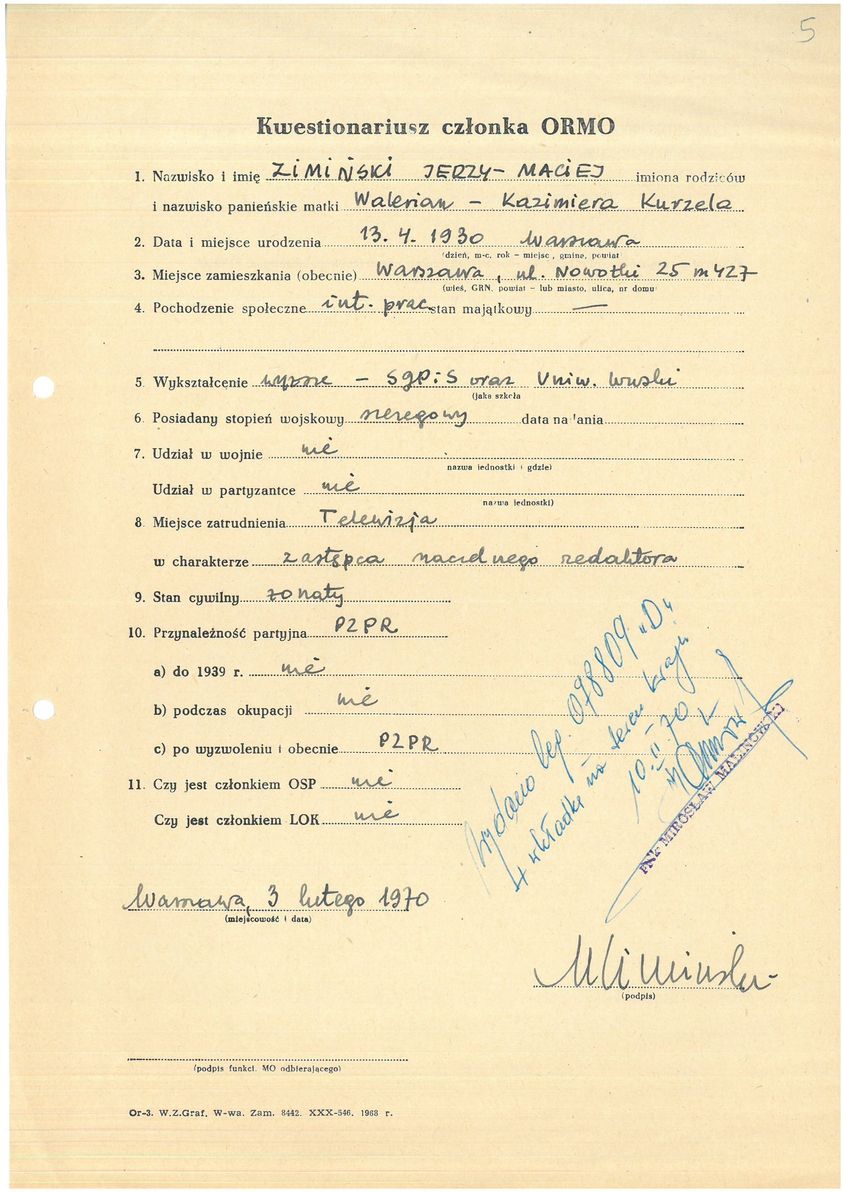 5
Kwestionariusz członka ORMO
1. Nazwisko i imię ZIMIŃSKI JERZY-MACIEJ imiona rodziców
i nazwisko panieńskie matki Walerian - Kazimiera Kurzela
2. Data i miejsce urodzenia 13. 4. 1930 Warszawa
(dzień, m-c, rok - miejsc, gmina, powiat
3. Miejsce zamieszkania (obecnie) Warszawa, ul. Nowotki 25 m 427
(wieś, GRN, powiat - lub miasto, ulica, nr domu
4. Pochodzenie społeczne int. prac. stan majątkowy —
5. Wykształcenie wyższe - SGPiS oraz Uniw. Wwski
(jaka szkoła
6. Posiadany stopień wojskowy szeregowy data na ania
7. Udział w wojnie nie
nazwa jednostki i gdzie)
Udział w partyzantce nie
nazwa jednostki)
8. Miejsce zatrudnienia Telewizja
w charakterze zastępca naczelnego redaktora
9. Stan cywilny żonaty
10. Przynależność partyjna PZPR
a) do 1939 r. nie
b) podczas okupacji nie
c) po wyzwoleniu i obecnie PZPR
11. Czy jest członkiem OSP nie
Czy jest członkiem LOK nie
Wydano leg. 078809 "D"
+ wkładkę na teren kraju
10.II.70
MIROSŁAW MALINOWSKI
Warszawa, 3 lutego 1970
(miejscowość i data)
(podpis)
(podpis funkcj. MO odbierającego)
Or-3. W.Z.Graf. W-wa. Zam. 8442. XXX-546. 1968 r.